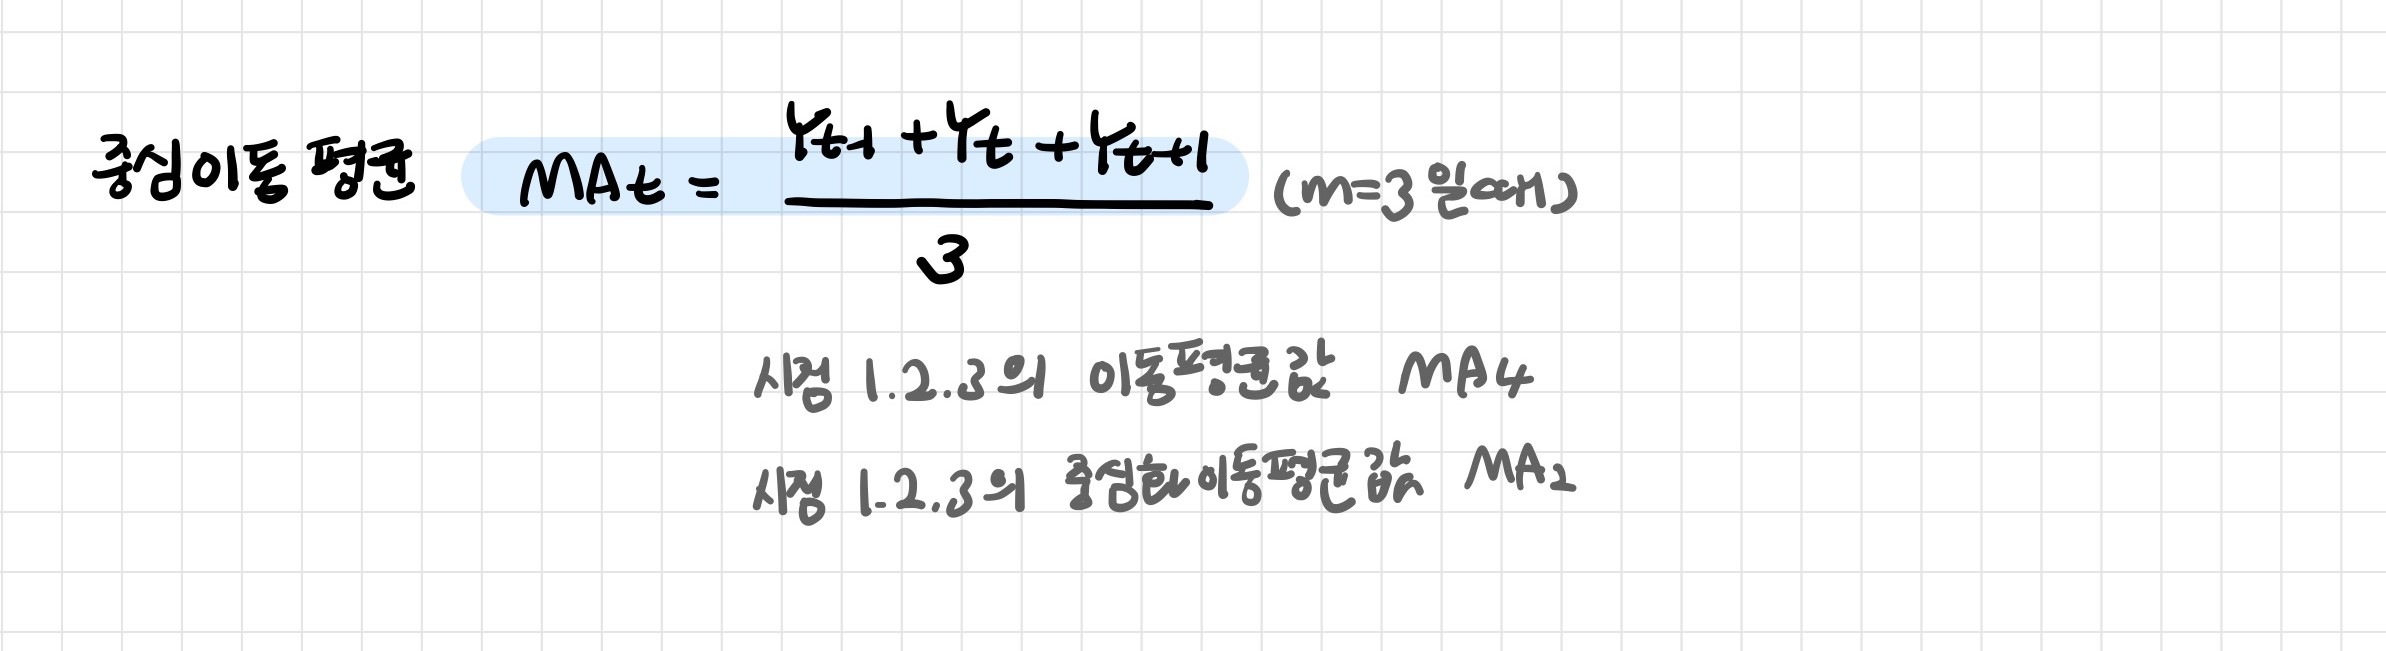 중심이동 평균 MAt = (Yt-1 + Yt + Yt+1) / 3 (m=3 일때)
시점 1.2.3의 이동평균값 MA4
시점 1.2.3의 중심화이동평균값 MA2